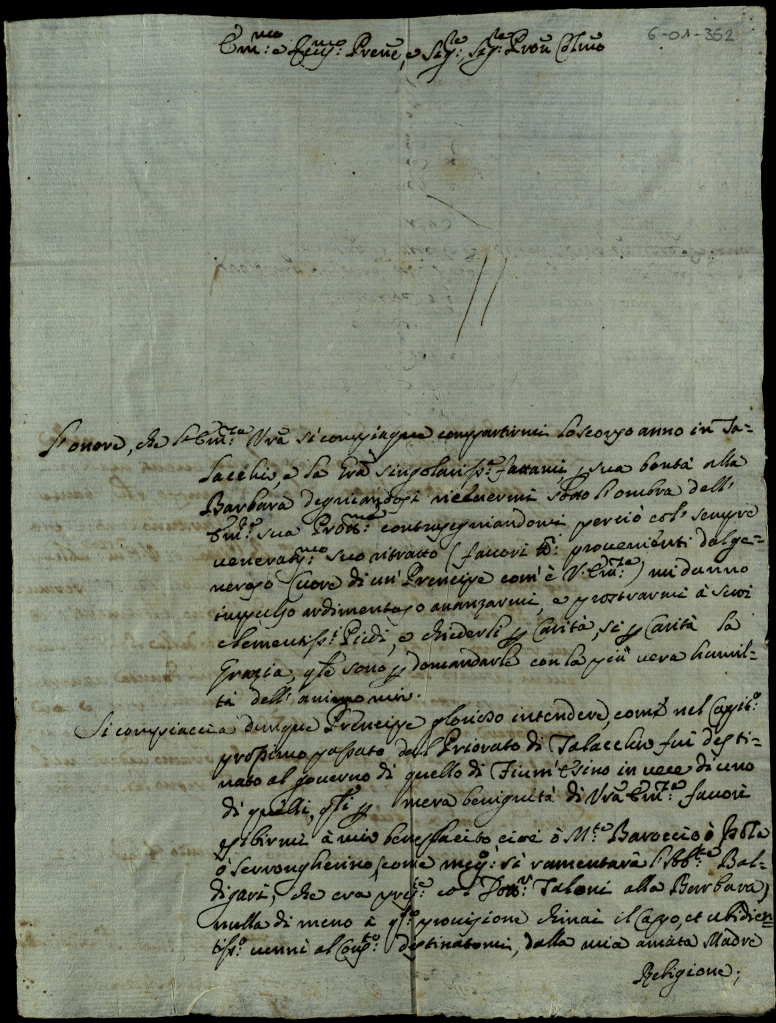 6-01-352
Em:mo e Prene, e Sig:le Sig:le Pron Colmo
L'onore, che l'Em:za Vrā si compiaque compartirmi lo scorso anno in Ta-
lacchio, e la Grā singolariss:ma fattami, sua bontà alla
Barbara degniandosi riceuermi sotto l'ombra dell'
Em:a sua contrasegniandomi perciò col' sempre
ueneratiss:mo suo ritratto (fauori prouenienti dal ge-
neroso Cuore di un' Prencipe com' è V. Em:za) mi danno
impulso ardimentoso auanzarmi, e prostrarmi à suoi
Clementiss:i Piedi, e chiederli Carità, si Carità la
Grazia, q̄le sono domandarle con la più uera humil-
tà dell' animo mio.
Si compiaccia dunque Prencipe glorioso intendere, com' nel Capit:o
prossimo passato dal Priorato di Talacchio fui desti-
nato al gouerno di quello di Fium'Esino in uece di uno
di quelli, q̄li mera benignità di Vrā Em:za fauorì
esibirmi à mio beneplacito cioè ò M:te Baroccio ò Isola
ò Serrongherino, come meg: si ramentarà l'Abb:te Bal-
digari, che era pres:te col Dott:r Taloni alla Barbara)
nulla di meno à q̄sta prouisione chinai il Capo, et ubidien-
tiss:o uenni al Conu:to destinatomi, dalla mia amata Madre
Religione;